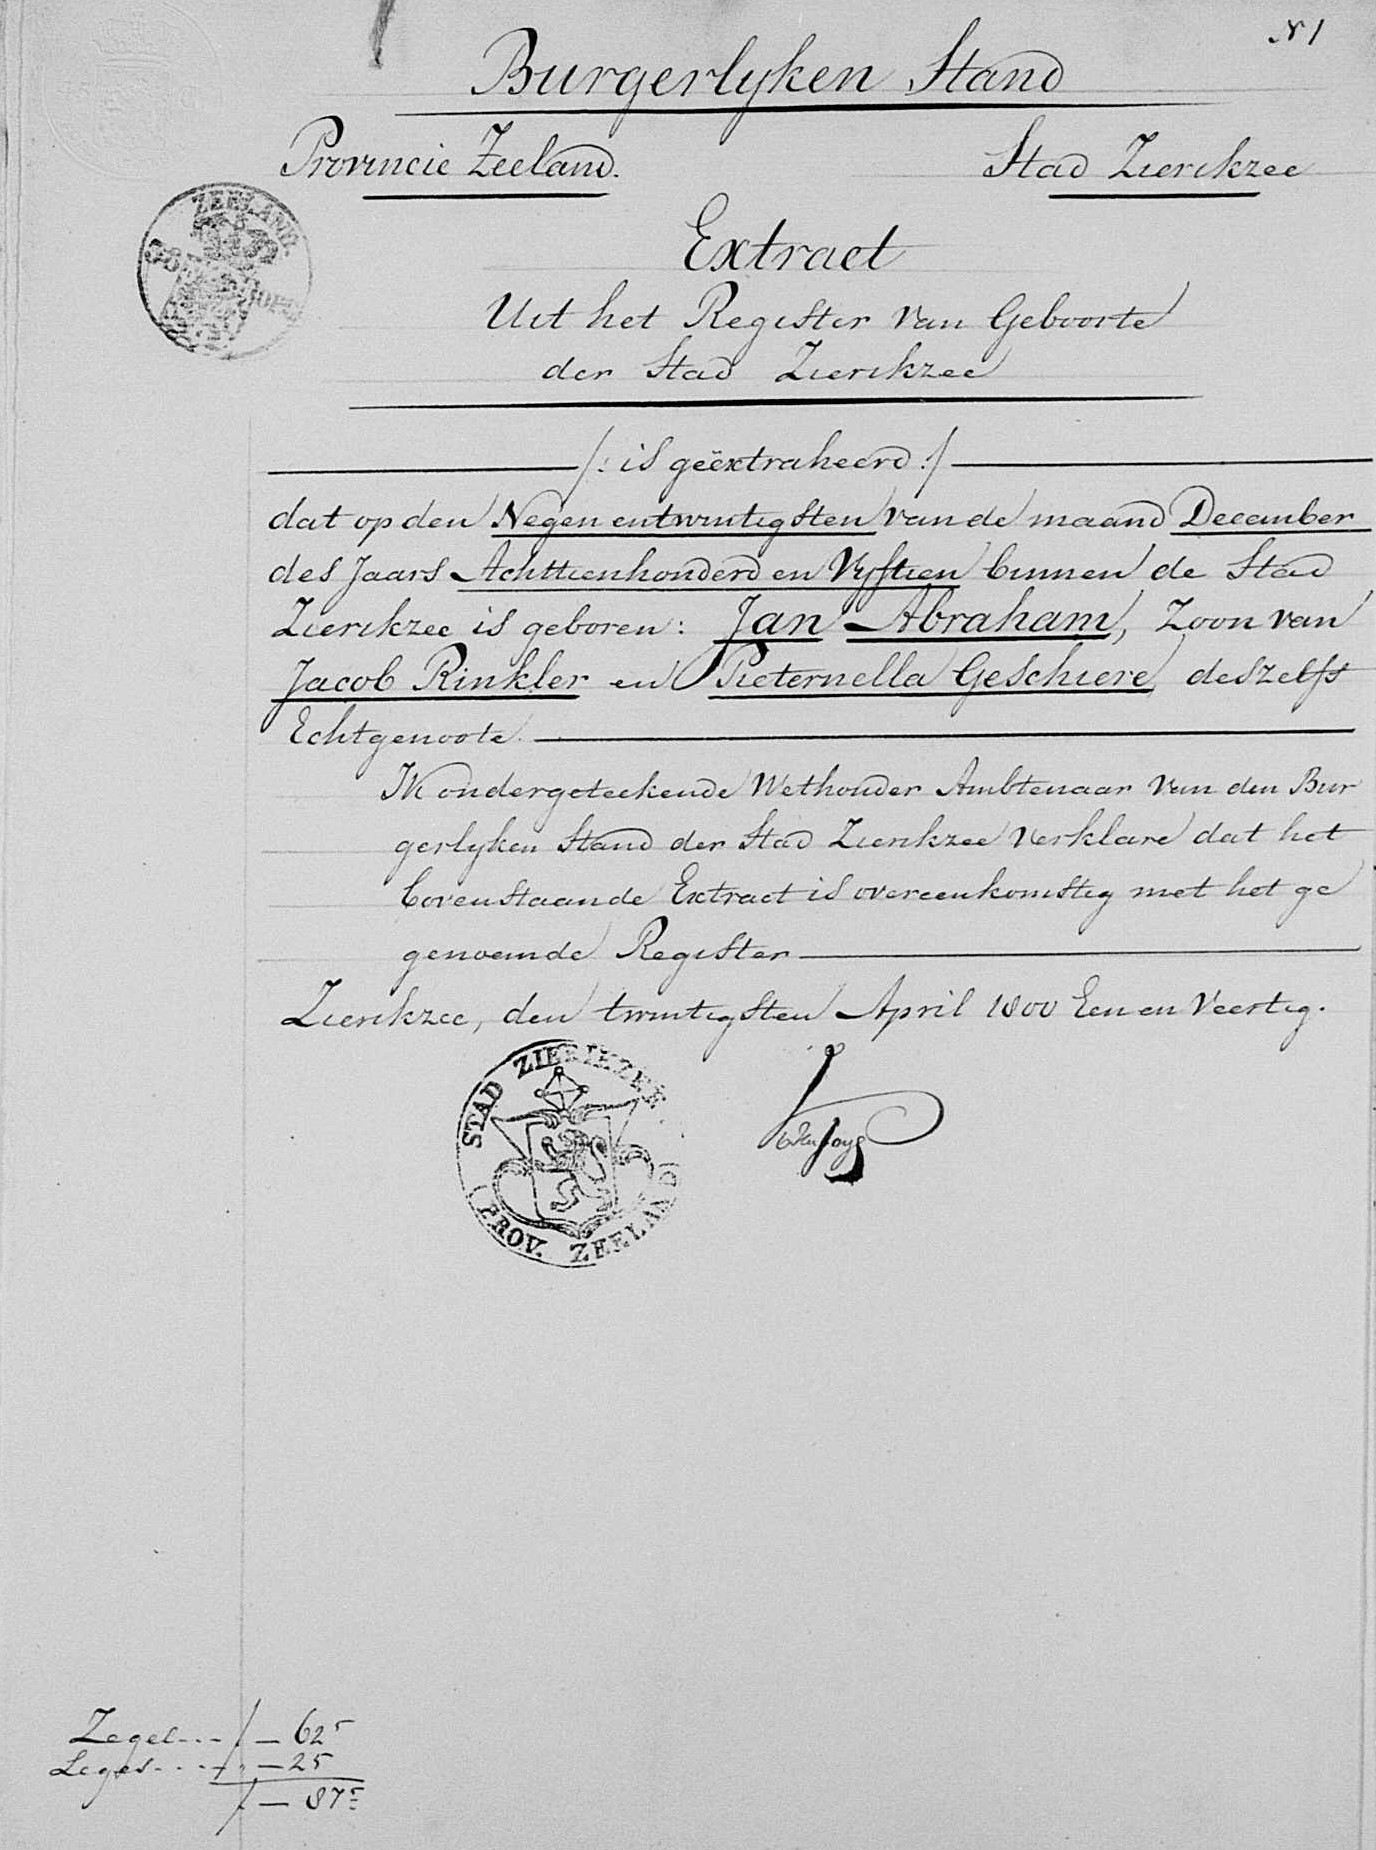 N 1
Burgerlyken Stand
Provincie Zeeland. Stad Zierikzee
ZEELAND.
Extract
Uit het Register van Geboorte
der Stad Zierikzee
/: is geëxtraheerd :/
dat op den Negenentwintigsten van de maand December
des Jaars Achttienhonderd en Vyftien binnen de Stad
Zierikzee is geboren: Jan Abraham, Zoon van
Jacob Rinkler en Pieternella Geschiere deszelfs
Echtgenoote.
Ik ondergeteekende Wethouder Ambtenaar van den Bur
gerlyken Stand der Stad Zierikzee verklare dat het
bovenstaande Extract is overeenkomstig met het ge
genoemde Register
Zierikzee, den twintigsten April 1800 Een en Veertig.
STAD ZIERIKZEE
PROV. ZEELAND
Zegel... f — 62⁵
Leges.... " — 25
f — 87⁵